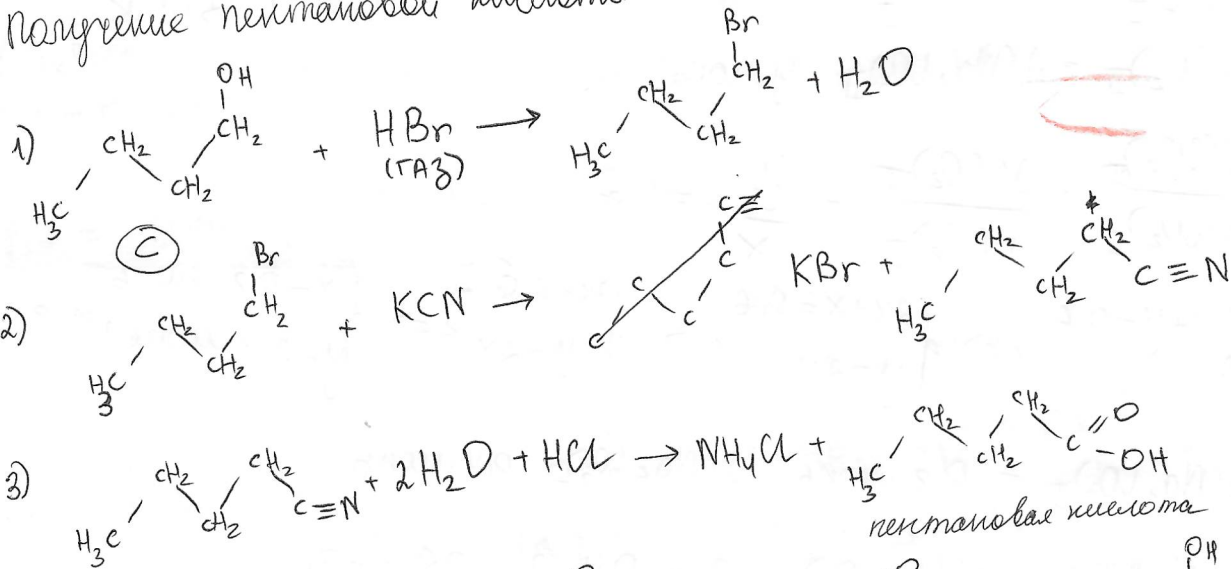 Получение пентановой кислоты
1) H₃C CH₂ CH₂ CH₂ OH + HBr (ГАЗ) → H₃C CH₂ CH₂ CH₂ Br + H₂O
C
2) H₃C CH₂ CH₂ CH₂ Br + KCN → KBr + H₃C CH₂ CH₂ CH₂ C≡N
3) H₃C CH₂ CH₂ CH₂ C≡N + 2H₂O + HCl → NH₄Cl + H₃C CH₂ CH₂ CH₂ C=O -OH
пентановая кислота
OH